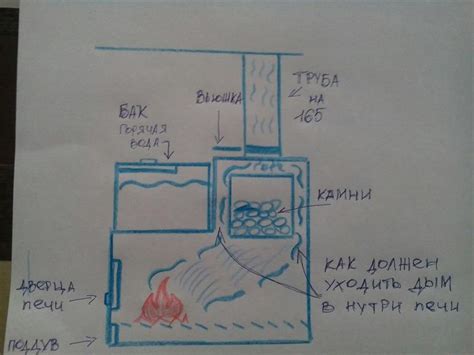 ТРУБА
НА
165
ВЬЮШКА
БАК
ГОРЯЧАЯ
ВОДА
КАМНИ
КАК ДОЛЖЕН
УХОДИТЬ ДЫМ
В НУТРИ ПЕЧИ
ДВЕРЦА
ПЕЧИ
ПОДДУВ